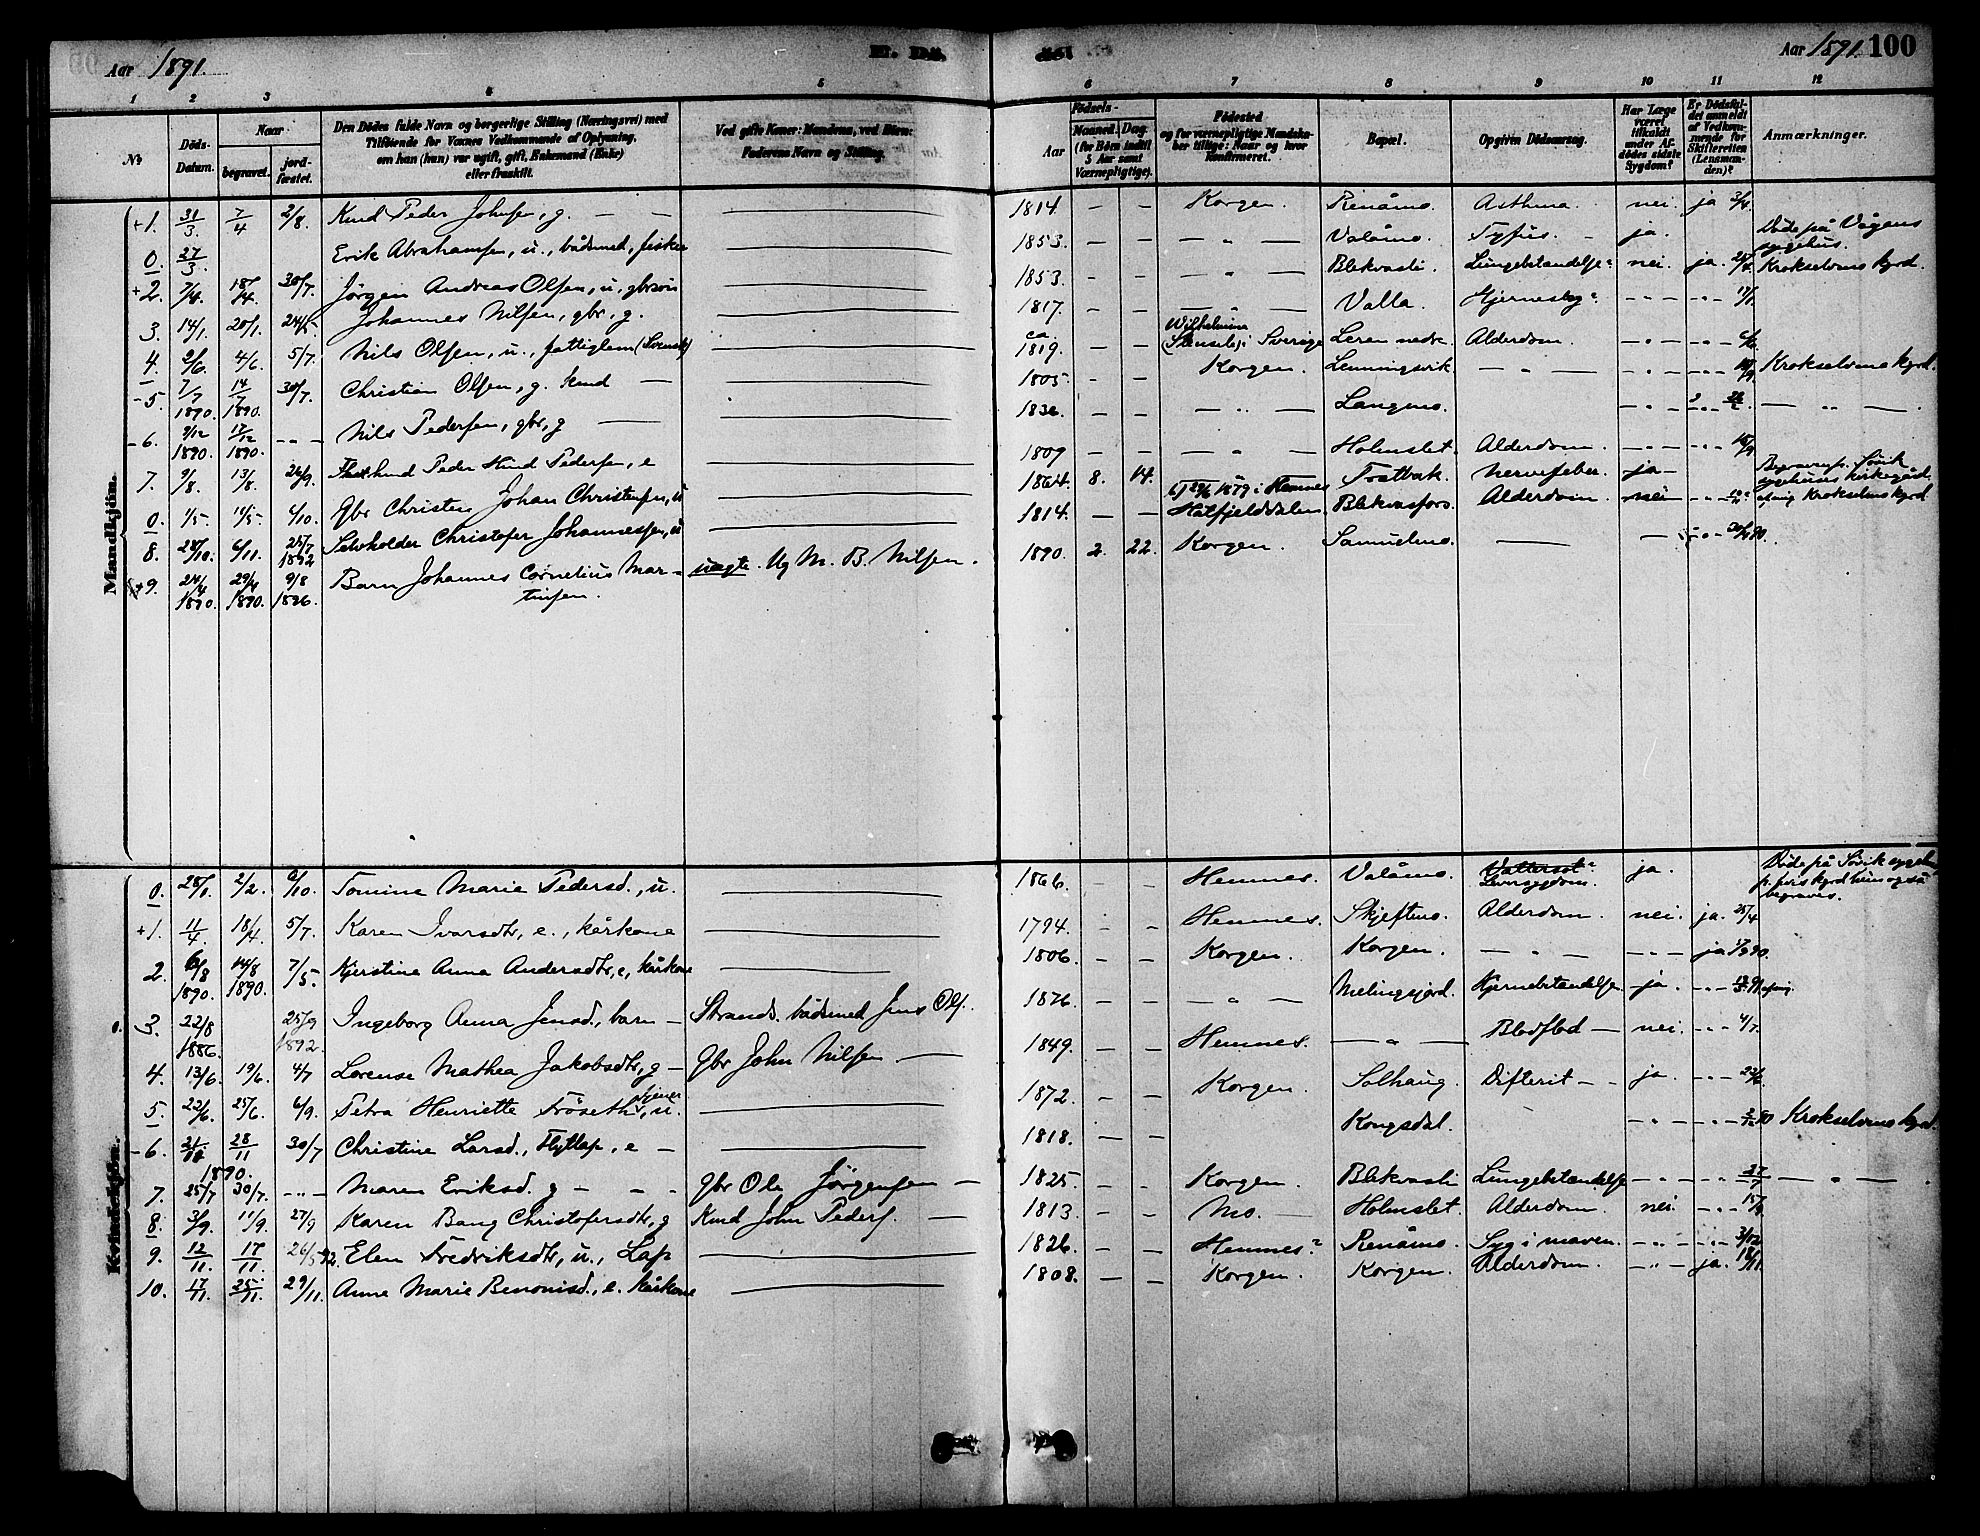 Aar 1891.
E. Dö
de.
Aar 1891. 100
1 2 3 4 5 6 7 8 9 10 11 12
No
Döds-Datum.
Naar
begravet.
jord-fæstet.
Den Dödes fulde Navn og borgerlige Stilling (Næringsvei) med
Tilföiende for Voxnes Vedkommende af Oplysning,
om han (hun) var ugift, gift, Enkemand (Enke)
eller fraskilt.
Ved gifte Koner: Mandens, ved Börn:
Faderens Navn og Stilling.
Födsels-
Aar
Maaned. Dag.
(for Börn indtil
5 Aar samt
Værnepligtige).
Födested
og for værnepligtige Mandska-
ber tillige: Naar og hvor
konfirmeret.
Bopæl.
Opgiven Dödsaarsag.
Har Læge
været
tilkaldt
under Af-
dödes sidste
Sygdom?
Er Dödsfal-
det anmeldt
af Vedkom-
mende for
Skifteretten
(Lensman-
den)?
Anmærkninger.
Mandkjön.
+1. 31/3. 7/4 2/8. Knud Peder Johnsen, g. — — 1814. — — Korgen. Renåmo. Asthma. nei. ja 3/4.
0. 27/3. Erik Abrahamsen, u., bådsmed, fisker 1853. — — — " — Valåmo. Tyfus. — ja. Døde på Vågens sygehus.
+2. 7/4. 18/4. 30/7. Jørgen Andreas Olsen, u, gbrsøn 1853. — — — " — Blekvasli. Lungebetændelse? nei. ja. 25/4. Krokselvens kgrd.
3. 14/1. 20/1. 24/5. Johannes Nilsen, gbr, g. 1817. — — — " — Valla. Hjernesyg? — " — — " — 17/1.
4. 2/6. 4/6. 5/7. Nils Olsen, u., fattiglem (Svensk) ca. 1819. — — Wilhelmina (Stensele) i Sverige Leren nedre Alderdom. — " — — " — 6/6.
-5. 7/7 1890. 14/7 1890. 30/7. Christian Olsen, g. kund — 1805. — — Korgen. Lenningsvik. — " — — " — — " — Krokselvens kgrd.
-6. 9/12 1890. 17/12 1890. — " — Nils Pedersen, gbr, g — 1836. — — — " — Langmo. — " — — " — — " —
7. 9/8. 13/8. 24/9. Peder Knud Pedersen, e 1809 — — — " — Holmslet. Alderdom. — " — — " — 15/9
0. 1/5. 11/5. 4/10. Gbr Christen Johan Christensen, u 1864. 8. 14. 1879 i Hemnes Tratbak. Nervefeber. ja — Krokselvens kgrd
8. 28/10. 6/11. 25/7 1892 Selvholder Christofer Johannessen, u 1814. — — Hatfjelddalen. Blekvasfors. Alderdom. nei — " —
+9. 24/4 1890. 29/4 1890. 9/8 1896. Barn Johannes Cornelius Mar- uægte. Ug M. B. Nilsen. 1890. 2. 22. Korgen. Samuelmo. — — — " —
tinsen.
Kvindekjön.
0. 28/1. 2/2. 6/10. Tomine Marie Pedersd., u. 1866. — — Hemnes. Valåmo. Vattersot? Leversygdom. ja. Døde på Søvik sygehus, p. hvis kgrd hun også begraves.
+1. 11/4. 18/4. 5/7. Karen Ivarsdtr, e., kårkone 1794. — — Hemnes. Skjeftmo. Alderdom. nei. ja. 25/4
2. 6/8 1890. 14/8 1890. 7/5. Kjerstine Anna Andersdtr, e, kårkone 1806. — — Korgen. Korgen. — " — — " — ja
3. 22/8 1886. 25/9 1892. Ingeborg Anna Jensd., barn — Strands. bådsmed Jens Ols. 1876. — — — " — Melingsjord. Hjernebetændelse. ja. — " —
4. 13/6. 19/6. 4/7 Lorense Mathea Jakobsdtr, g — Gbr John Nilsen — 1849. — — Hemnes. — " — Blodflod — nei. — " — 4/7.
5. 22/6. 25/6. 6/9. Petra Henriette Frøseth, tjener u. 1872. — — Korgen. Solhaug. Difterit — ja. — " —
-6. 21/11 28/11 30/7 Christine Larsd., Flytlap, e — 1818. — — Kongsdal. — " — — " — Krokselvens kgrd.
1890.
7. 25/7 30/7. — " — Maren Eriksd. g — — — Gbr Ole Jörgensen — 1825. — — Korgen. Blekvasli Lungebetændelse — " — — " — 27/7 — " — .
8. 3/9. 11/9. 27/9 Karen Bang Christofersdtr, g Knud John Peders. — 1813. — — Mo. — Holmslet. Alderdom. nei. — " — 15/9.
9. 12/11. 17/11. 26/5 92. Elen Fredriksdtr, u., Lap 1826. — — Hemnes? Renåmo. Syg i maven. — " — — " — 2/12
10. 17/11. 25/11. 29/11. Anne Marie Benonisd., e. kårkone 1808. — — Korgen. Korgen. Alderdom. — " — ja. 18/11.